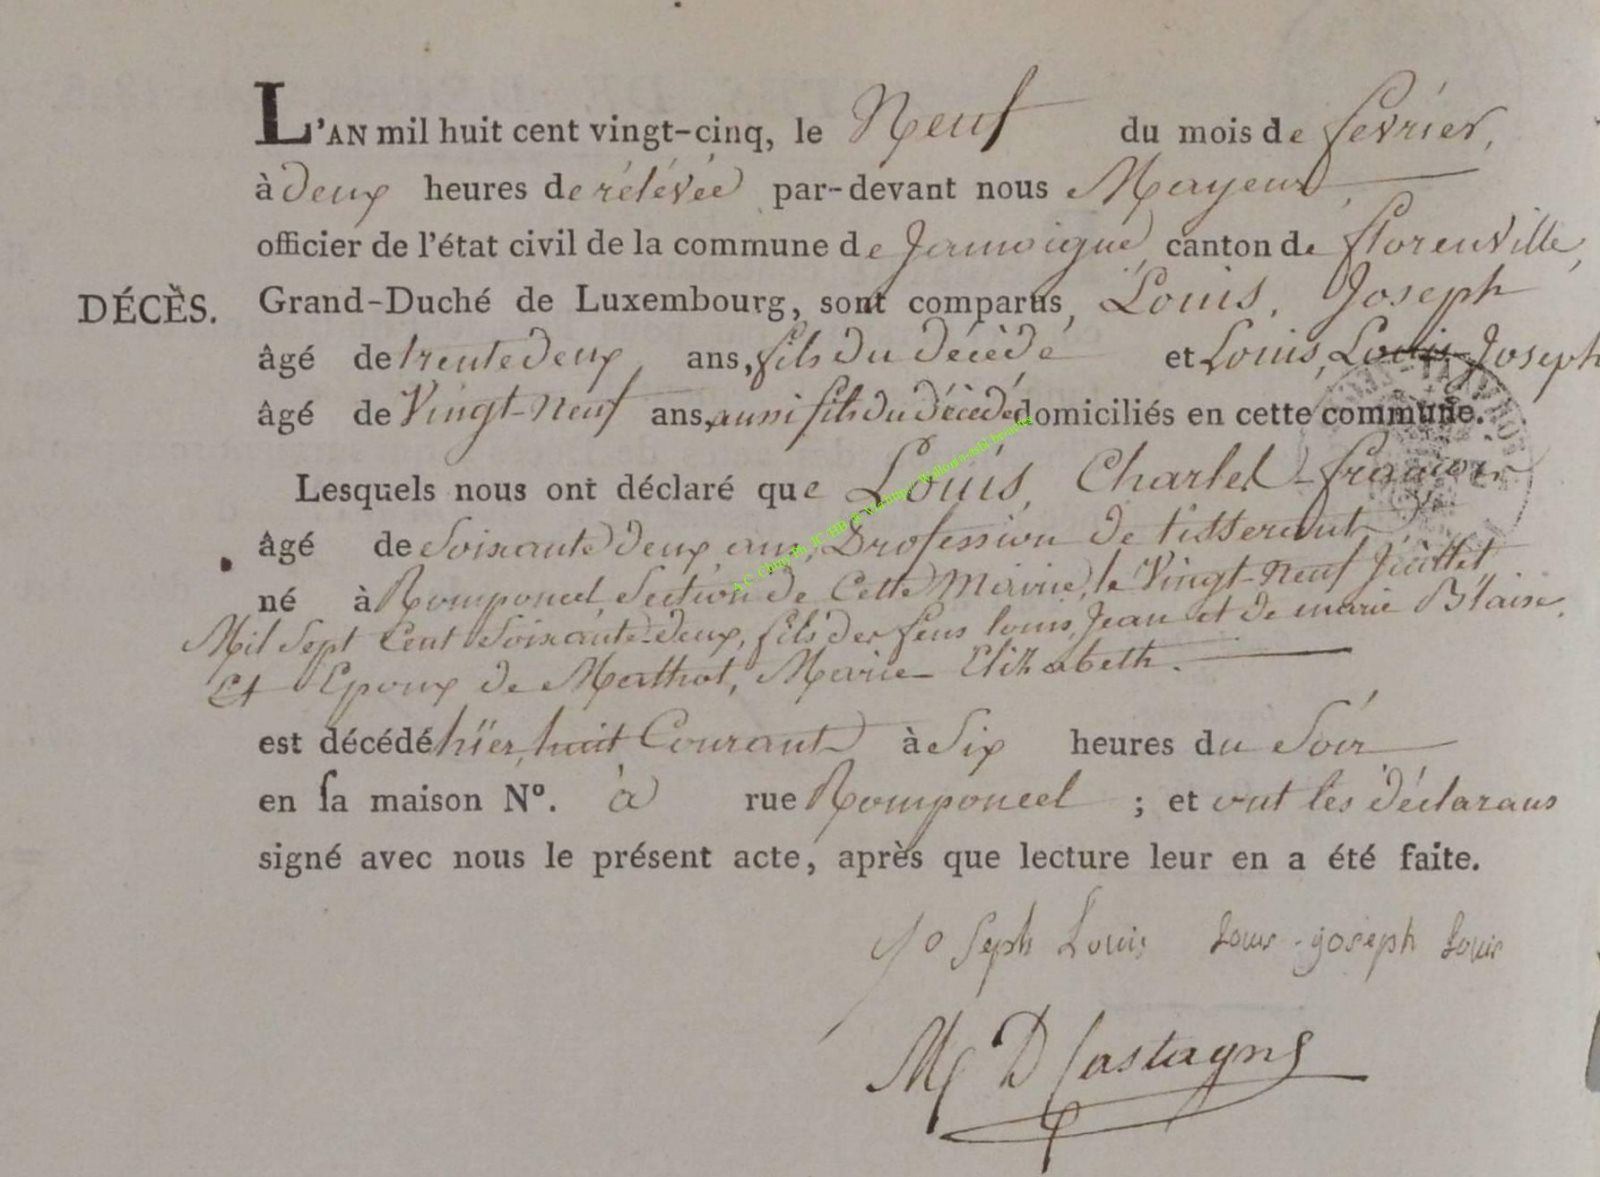 L'AN mil huit cent vingt-cinq, le Neuf du mois de fevrier,
à deux heures de rélévée par-devant nous Mayeur
officier de l'état civil de la commune de Jamoigne, canton de florenville,
DÉCÈS. Grand-Duché de Luxembourg, sont comparus, Louis, Joseph
âgé de trente deux ans, fils du décèdé et Louis, Louis-Joseph
âgé de Vingt-Neuf ans, aussi fils du décèdé, domiciliés en cette commune.
Lesquels nous ont déclaré que Louis, Charles-françois
âgé de soixante deux ans, Profession de tisserant
né à Romponcel, Section de Cette Mairie, le Vingt-Neuf Juillet
Mil Sept Cent Soixante-deux, fils des feus louis, Jean et de marie Blaise.
Et Epoux de Mathot, Marie Elizabeth.
est décédé hïer, huit Courant à Six heures du Soir
en sa maison N°. à rue Romponcel ; et ont les déclarans
signé avec nous le présent acte, après que lecture leur en a été faite.
Joseph Louis Louis-joseph Louis
Castagne